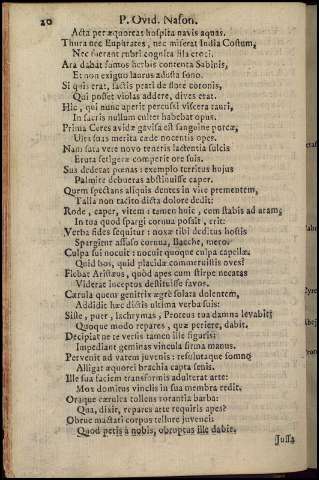 20 P. Ovid. Nason.
Acta per æquoreas hospita navis aquas.
Thura nec Euphrates, nec miserat India Costum,
Nec fuerant rubri cognita fila croci.
Ara dabat fumos herbis contenta Sabinis,
Et non exiguo laurus adusta sono.
Si quis erat, factis prati de flore coronis,
Qui posset violas addere, dives erat.
Hic, qui nunc aperit percussi viscera tauri,
In sacris nullum culter habebat opus.
Prima Ceres avidæ gavisa est sanguine porcæ,
Ulta suas merita cæde nocentis opes.
Nam sata vere novo teneris lactentia sulcis
Eruta setigeræ comperit ore suis.
Sus dederat pœnas: exemplo territus hujus
Palmite debueras abstinuisse caper.
Quem spectans aliquis dentes in vite prementem,
Talia non tacito dicta dolore dedit:
Rode, caper, vitem: tamen huic, cum stabis ad aram,
In tua quod spargi cornua possit, erit.
Verba fides sequitur: noxæ tibi deditus hostis
Spargitur affuso cornua, Bacche, mero.
Culpa sui nocuit: nocuit quoque culpa capellæ.
Quid bos, quid placidæ commeruistis oves?
Flebat Aristæus, quòd apes cum stirpe necatas
Viderat inceptos destituisse favos.
Cærula quem genitrix ægrè solata dolentem,
Addidit hæc dictis ultima verba suis:
Siste, puer, lachrymas, Proteus tua damna levabit;
Quoque modo repares, quæ periere, dabit.
Decipiat ne te versis tamen ille figuris:
Impediant geminas vincula firma manus.
Pervenit ad vatem juvenis: resolutaque somno
Alligat æquorei brachia capta senis.
Ille sua faciem transformis adulterat arte:
Mox domitus vinclis in sua membra redit.
Oraque cærulea tollens rorantia barba:
Qua, dixit, repares arte requiris apes?
Obrue mactati corpus tellure juvenci:
Quod petis à nobis, obrutus ille dabit.
Jussa